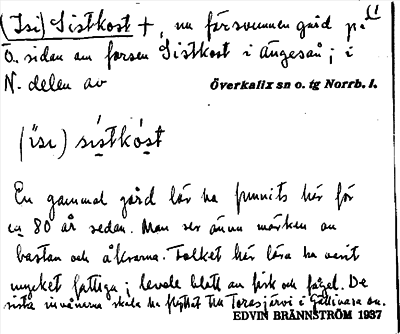 (Isi) Sistkost +, nu försvunnen gård på (1
Ö. sidan om forsen Sistkost i Ängesån; i
N. delen av Överkalix sn o. tg Norrb. l.
(ísı) sístkòst
En gammal gård lär ha funnits här för
ca 80 år sedan. Man ser ännu märken av
bastan och åkrarna. Folket här lära ha varit
mycket fattiga; levde blott av fisk och fågel. De
sista invånarna skola ha flyttat till Torasjärvi i Gällivara sn.
EDVIN BRÄNNSTRÖM 1937